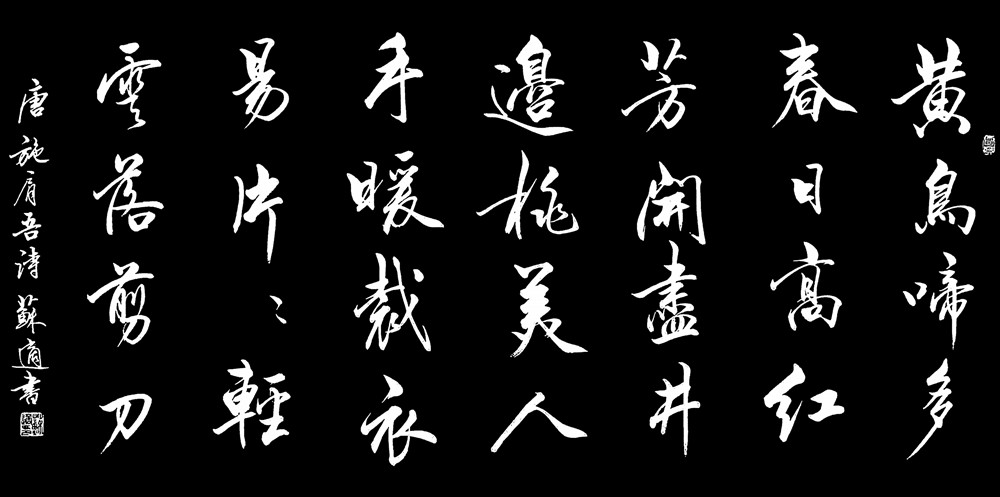 黄鳥啼多
春日高紅
芳開盡井
邊桃美人
手暖裁衣
易片〻輕
雲落剪刀
唐施肩吾詩 蘇適書